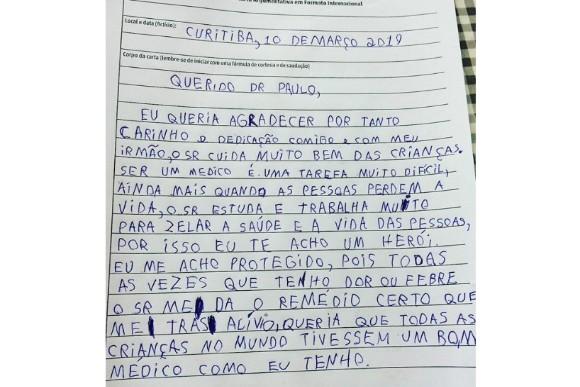 Argumentativa em Formato Internacional
Local e data (fictício): CURITIBA, 10 DE MARÇO 2019
Corpo da carta (lembre-se de iniciar com uma fórmula de cortesia e de saudação)
QUERIDO DR PAULO,
EU QUERIA AGRADECER POR TANTO
CARINHO e DEDICAÇÃO COMIGO e COM MEU
IRMÃO, O SR CUIDA MUITO BEM DAS CRIANÇAS.
SER UM MEDICO É UMA TAREFA MUITO DIFÍCIL,
AINDA MAIS QUANDO AS PESSOAS PERDEM A
VIDA, O SR ESTUDA E TRABALHA MUITO
PARA ZELAR A SAÚDE E A VIDA DAS PESSOAS,
POR ISSO EU TE ACHO UM HEROI.
EU ME ACHO PROTEGIDO, POIS TODAS
AS VEZES QUE TENHO DOR OU FEBRE
O SR ME DA O REMÉDIO CERTO QUE
ME TRÁS ALIVIO, QUERIA QUE TODAS AS
CRIANÇAS NO MUNDO TIVESSEM UM BOM
MÉDICO COMO EU TENHO.